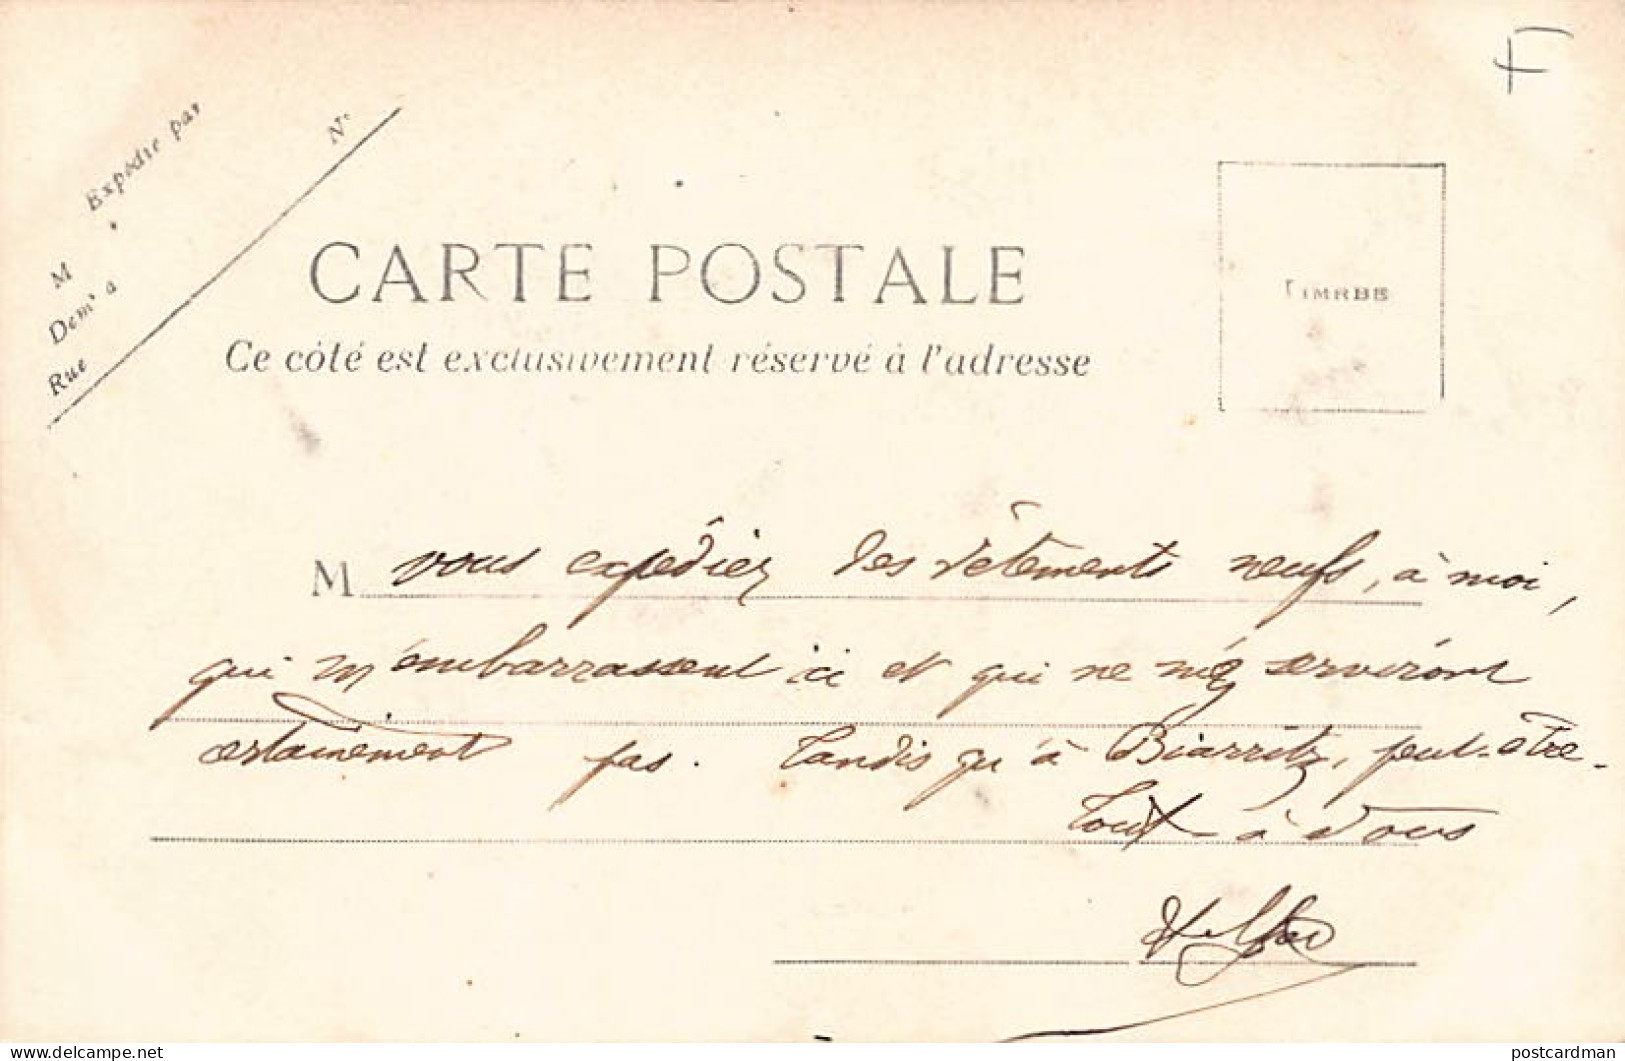 F
Expédié par
M
Demt à
Rue
N°
CARTE POSTALE
Ce côté est exclusivement réservé à l'adresse
TIMRBE
M vous expédier des vêtements neufs, à moi,
qui m'embarrassent ici et qui ne me serviront
certainement pas. Tandis qu'à Biarritz, peut-être.
Tout à vous
delcampe.net
postcardman